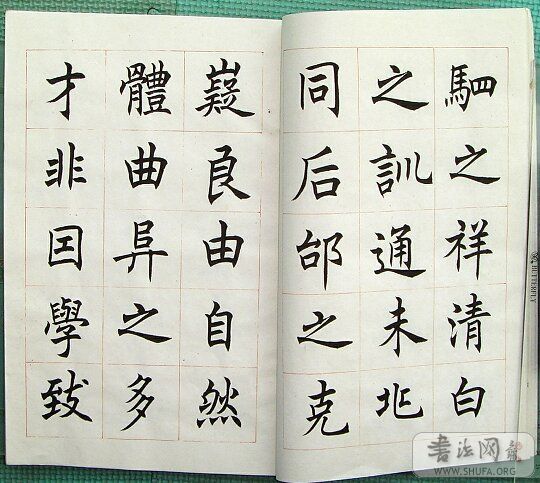 駟之祥清白
之訓通未兆
同后邰之克
嶷良由自然
體曲阜之多
才非因學致
BUTTERFLY
书法网
WWW.SHUFA.ORG